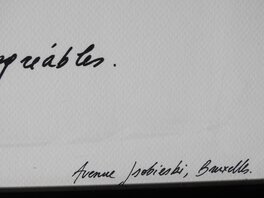 agréables.
Avenue Jsobieski, Bruxelles.